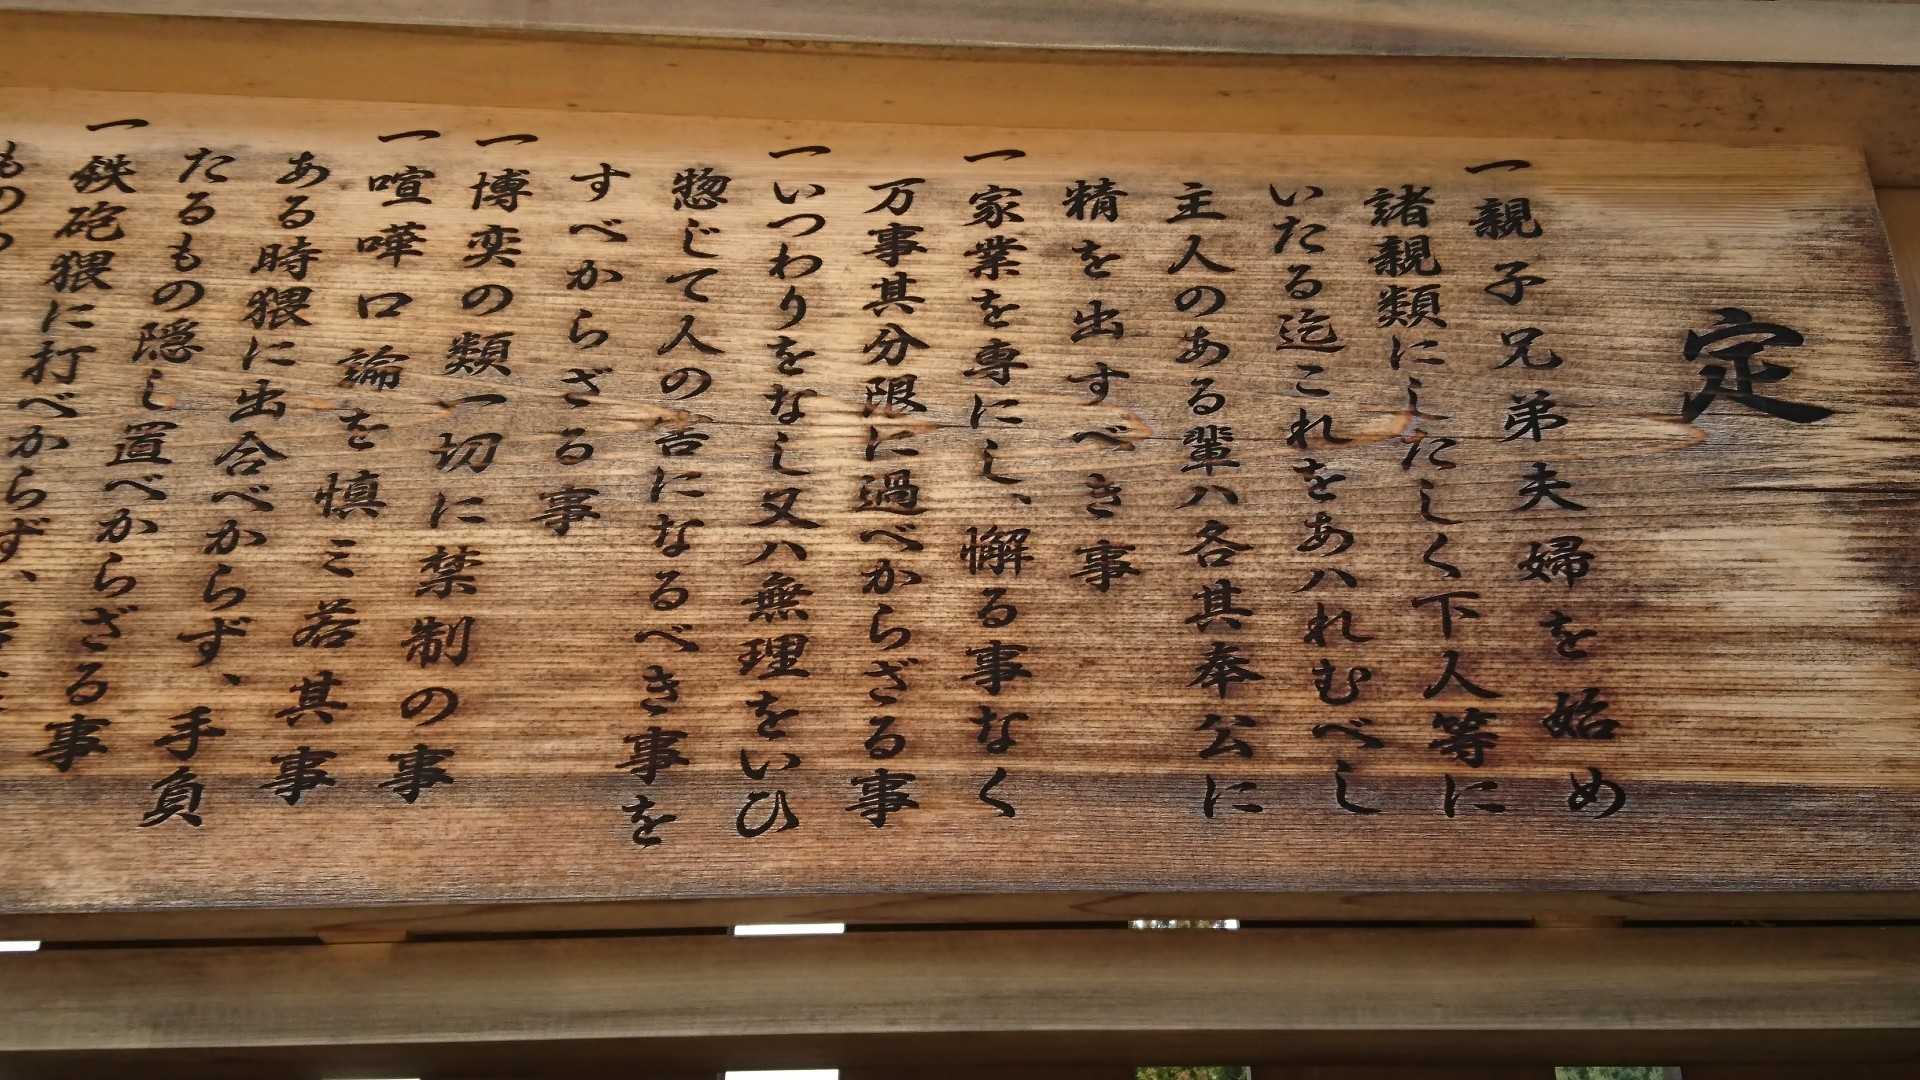 定
一親子兄弟夫婦を始め
諸親類にしたしく下人等に
いたる迄これをあハれむべし
主人のある輩ハ各其奉公に
精を出すべき事
一家業を専にし、懈る事なく
万事其分限に過べからざる事
一いつわりをなし又ハ無理をいひ
惣じて人の害になるべき事を
すべからざる事
一博奕の類一切に禁制の事
一喧嘩口論を慎ミ若其事
ある時猥に出合べからず、手負
たるもの隠し置べからざる事
一鉄砲猥に打べからず、